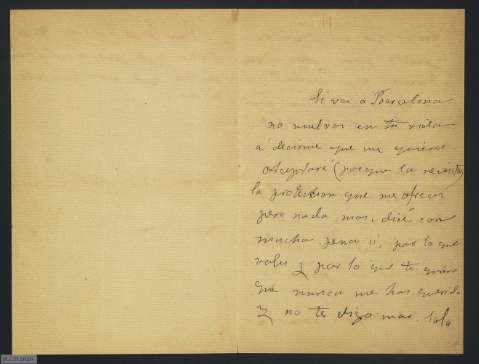 Si vas á Barcelona
no vuelvas en tu vida
á decirme que me quieres
Aceptaré (porque la necesito)
la proteccion que me ofreces
pero nada mas, diré con
mucha pena si, por lo que
vales y por lo que te quiero
que nunca me has querido
y no te digo mas. Lola